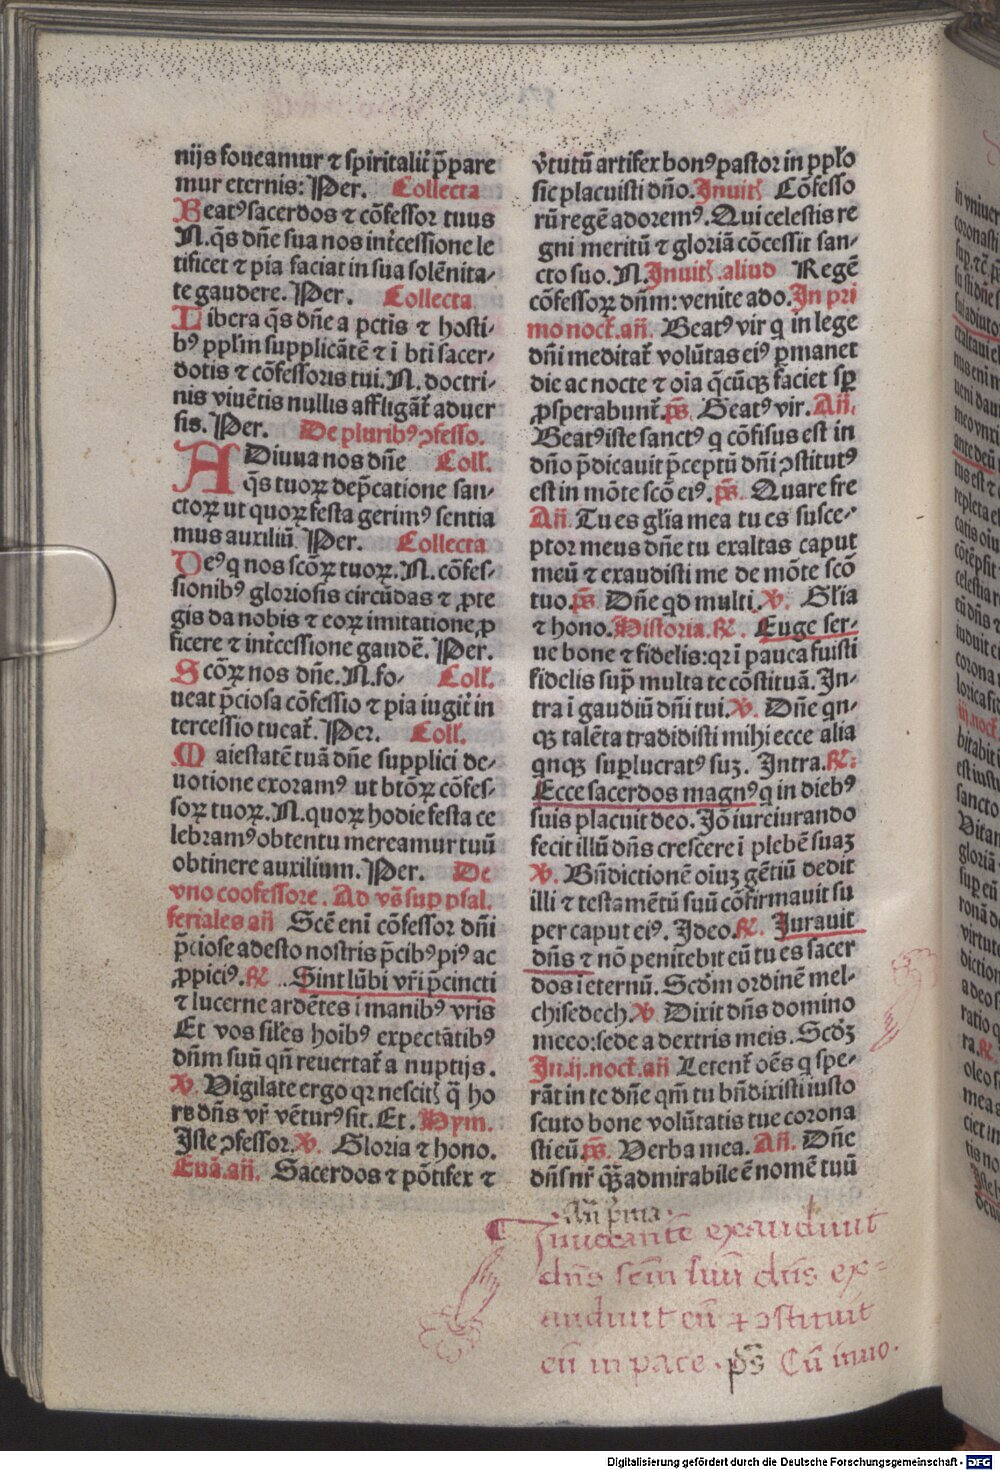 nijs foueamur ⁊ spiritalit̄ p̄pare
mur eternis: Per. Collecta
Beatꝰ sacerdos ⁊ cōfessor tuus
N. q̄s dn̄e sua nos int̄cessione le
tificet ⁊ pia faciat in sua solēnita-
te gaudere. Per. Collecta
Libera q̄s dn̄e a pctīs ⁊ hosti-
bꝰ pplm̄ supplicātē ⁊ ī bt̄i sacer-
dotis ⁊ cōfessoris tui. N. doctri-
nis viuētis nullis affligāt̄ aduer
sis. Per. De pluribꝰ ↄfesso.
ADiuua nos dn̄e Coll̄.
q̄s tuoꝝ dep̄catione san-
ctoꝝ ut quoꝝ festa gerimꝰ sentia
mus auxiliū. Per. Collecta
Deꝰ q nos scōꝝ tuoꝝ. N. cōfes-
sionibꝰ gloriosis circūdas ⁊ ꝓte
gis da nobis ⁊ eoꝝ imitatione ꝓ
ficere ⁊ int̄cessione gaudē. Per.
Scōꝝ nos dn̄e. N. fo- Coll̄.
ueat p̄ciosa cōfessio ⁊ pia iugit̄ in
tercessio tueat̄. Per. Coll̄.
Maiestatē tuā dn̄e supplici de-
uotione exoramꝰ ut btōꝝ cōfes-
soꝝ tuoꝝ. N. quoꝝ hodie festa ce
lebramꝰ obtentu mereamur tuū
obtinere auxilium. Per. De
vno coofessore. Ad vs̄ sup psal.
feriales an̄ Scē eni cōfessor dn̄i
p̄ciose adesto nostris p̄cibꝰ piꝰ ac
ꝓpiciꝰ. ℟ Sint lūbi vr̄i p̄cincti
⁊ lucerne ardētes ī manibꝰ vr̄is
Et vos sil̄es hoībꝰ expectātibꝰ
dn̄m suū qn̄ reuertat̄ a nuptijs.
℣. Vigilate ergo qr nescitꝭ q̄ ho
ra dn̄s vr̄ vēturꝰ sit. Et. Hym.
Iste ↄfessor. ℣. Gloria ⁊ hono.
Euā. an̄. Sacerdos ⁊ pōtifex ⁊
v̄tutū artifex bonꝰ pastor in pplo
sic placuisti dn̄o. Inuitꝭ Cōfesso
rū regē adoremꝰ. Qui celestis re
gni meritū ⁊ gloriā cōcessit san-
cto suo. N. Inuitꝭ. aliud Regē
cōfessoꝝ dn̄m: venite ado. In pri
mo noct̄. an̄. Beatꝰ vir q in lege
dn̄i meditat̄ volūtas eiꝰ ꝑmanet
die ac nocte ⁊ oīa q̄cūqꝫ faciet sꝑ
ꝓsperabunt̄. ps̄. Beatꝰ vir. An̄.
Beatꝰ iste sanctꝰ q cōfisus est in
dn̄o p̄dicauit p̄ceptū dn̄i ↄstitutꝰ
est in mōte scō eiꝰ. ps̄. Quare fre
An̄ Tu es gl̄ia mea tu es susce-
ptor meus dn̄e tu exaltas caput
meū ⁊ exaudisti me de mōte scō
tuo. ps̄ Dn̄e qd multi. ℣. Gl̄ia
⁊ hono. Historia. ℟. Euge ser-
ue bone ⁊ fidelis: qr ī pauca fuisti
fidelis sup̄ multa te cōstituā. In-
tra ī gaudiū dn̄i tui. ℣. Dn̄e qn-
qꝫ talēta tradidisti mihi ecce alia
qnqꝫ suꝑlucratꝰ suꝫ. Intra. ℟:
Ecce sacerdos magnꝰ q in diebꝰ
suis placuit deo. Iō iureiurando
fecit illū dn̄s crescere ī plebē suaꝫ
℣. Bn̄dictionē oiuꝫ gētiū dedit
illi ⁊ testamētū suū cōfirmauit su
per caput eiꝰ. Ideo. ℟. Iurauit
dn̄s ⁊ nō penitebit eū tu es sacer
dos ī eternū. Scd̄m ordinē mel-
chisedech. ℣. Dixit dn̄s domino
meo: sede a dextris meis. Scd̄ꝫ
In. ij. noct̄. an̄ Letent̄ oēs q spe-
rāt in te dn̄e qm̄ tu bn̄dixisti iusto
scuto bone volūtatis tue corona
sti eū. ps̄. Verba mea. An̄. Dn̄e
dn̄s nr̄ q̄ꝫ admirabile ē nomē tuū
An̄ prima.
Inuocante exaudiuit
dn̄s scm̄ suū dn̄s ex-
audiuit eū ⁊ ↄstituit
eū in pace. ps̄ Cū inuo.
Digitalisierung gefördert durch die Deutsche Forschungsgemeinschaft - DFG